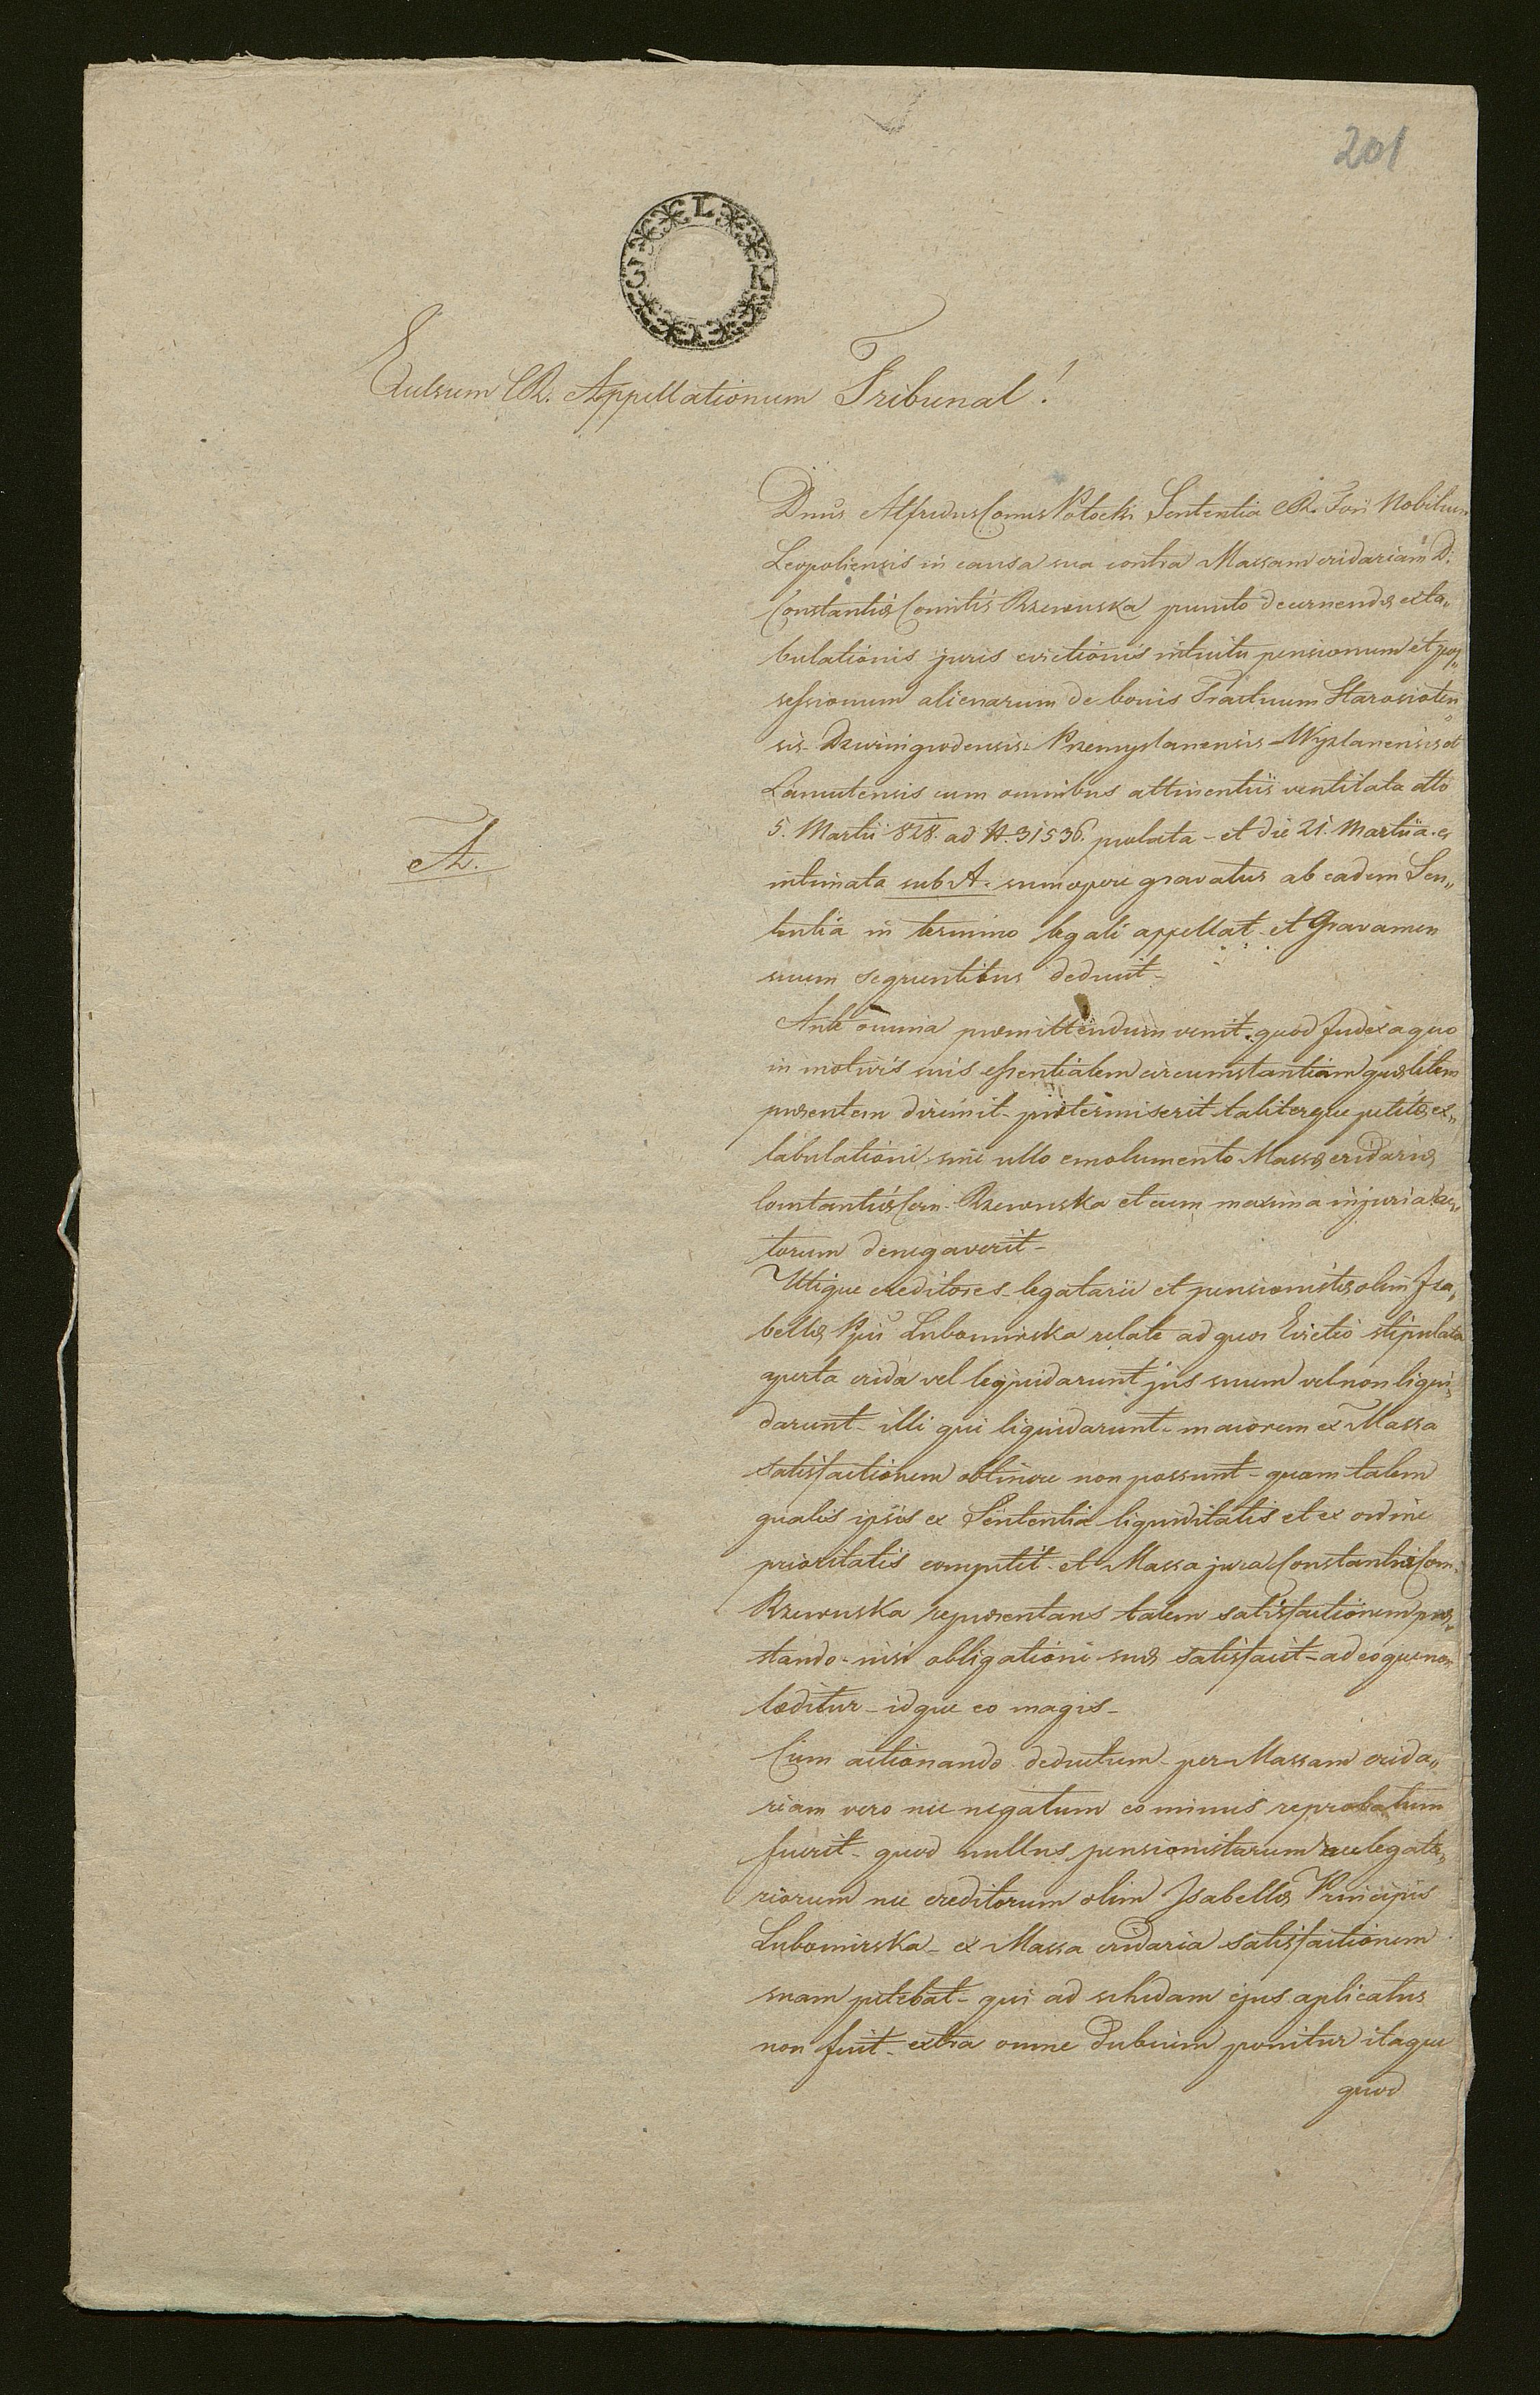 201
L K
Exulsum C.R. Appellationum Tribunal!
Dnus Alfredus Comes Potocki Sententia C.R. Fori Nobilium
Leopoliensis in causa sua contra Massam cridariam D.
Constantiæ Comitis Rzewuska puncto decernendæ exta„
bulationis juris evictionis intuitu pensionum et pos„
sessionum alienarum de bonis Tractuum Starosioten„
sis - Dzwinigrodensis - Przemyslanensis - Wyzlanensis et
Lancutensis cum omnibus attinentiis ventilata dtto
5. Martii 828. ad N. 31536. prolata - et die 21. Martii a. c.
A.
intimata sub A. summopere gravatus ab eadem Sen„
tentia in termino legali appellat - et Gravamen
suum sequentibus deducit -
Ante omnia præmittendum venit - quod Judex a quo
in motivis suis essentialem circumstantiam quæ litem
præsentem dirimit - prætermiserit taliterque petitæ ex„
tabulationi sine ullo emolumento Massæ cridariæ
Constantiæ Com. Rzewuska et cum maxima injuria Ac„
torum denegaverit -
Utique creditores - legatarii et pensionistæ olim Isa„
bellæ Ppis Lubomirska relate ad quos Evictio stipulata
aperta crida vel liquidarunt jus suum vel non liqui„
darunt - illi qui liquidarunt - maiorem ex Massa
satisfactionem obtinere non possunt - quam talem
qualis ipsis ex Sententia liquiditatis et ex ordine
prioritatis competit - et Massa jura Constantiæ Com.
Rzewuska repræsentans talem satisfactionem præ„
stando - nisi obligationi suæ satisfacit - adeoque non
læditur - idque eo magis -
Cum actionando deductum - per Massam crida„
riam vero nec negatum eo minus reprobatum
fuerit - quod nullus pensionistarum nec legata„
riorum nec creditorum olim Isabellæ Principis
Lubomirska - ex Massa cridaria satisfactionem
suam petebat - qui ad schedam ejus aplicatus
non fuit - extra omne dubium ponitur itaque
quod